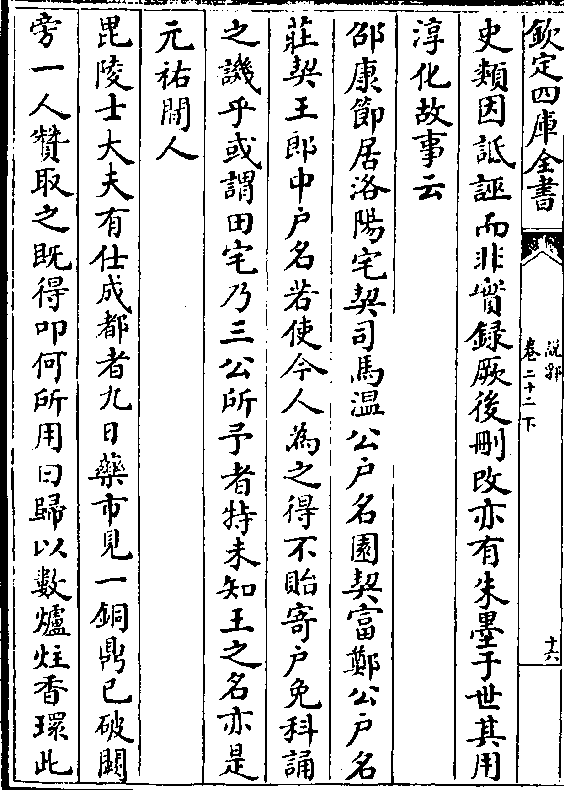 欽定四庫全書
說郛
卷二十二下
十六
史類因詆誣而非實録厥後刪改亦有朱墨于世其用
淳化故事云
邵康節居洛陽宅契司馬温公户名園契富鄭公户名
莊契王郎中户名若使今人為之得不貽寄户免科誦
之譏乎或謂田宅乃三公所予者特未知王之名亦是
元祐間人
毘陵士大夫有仕成都者九日藥市見一銅鼎已破闕
旁一人贊取之既得叩何所用曰歸以數爐炷香環此